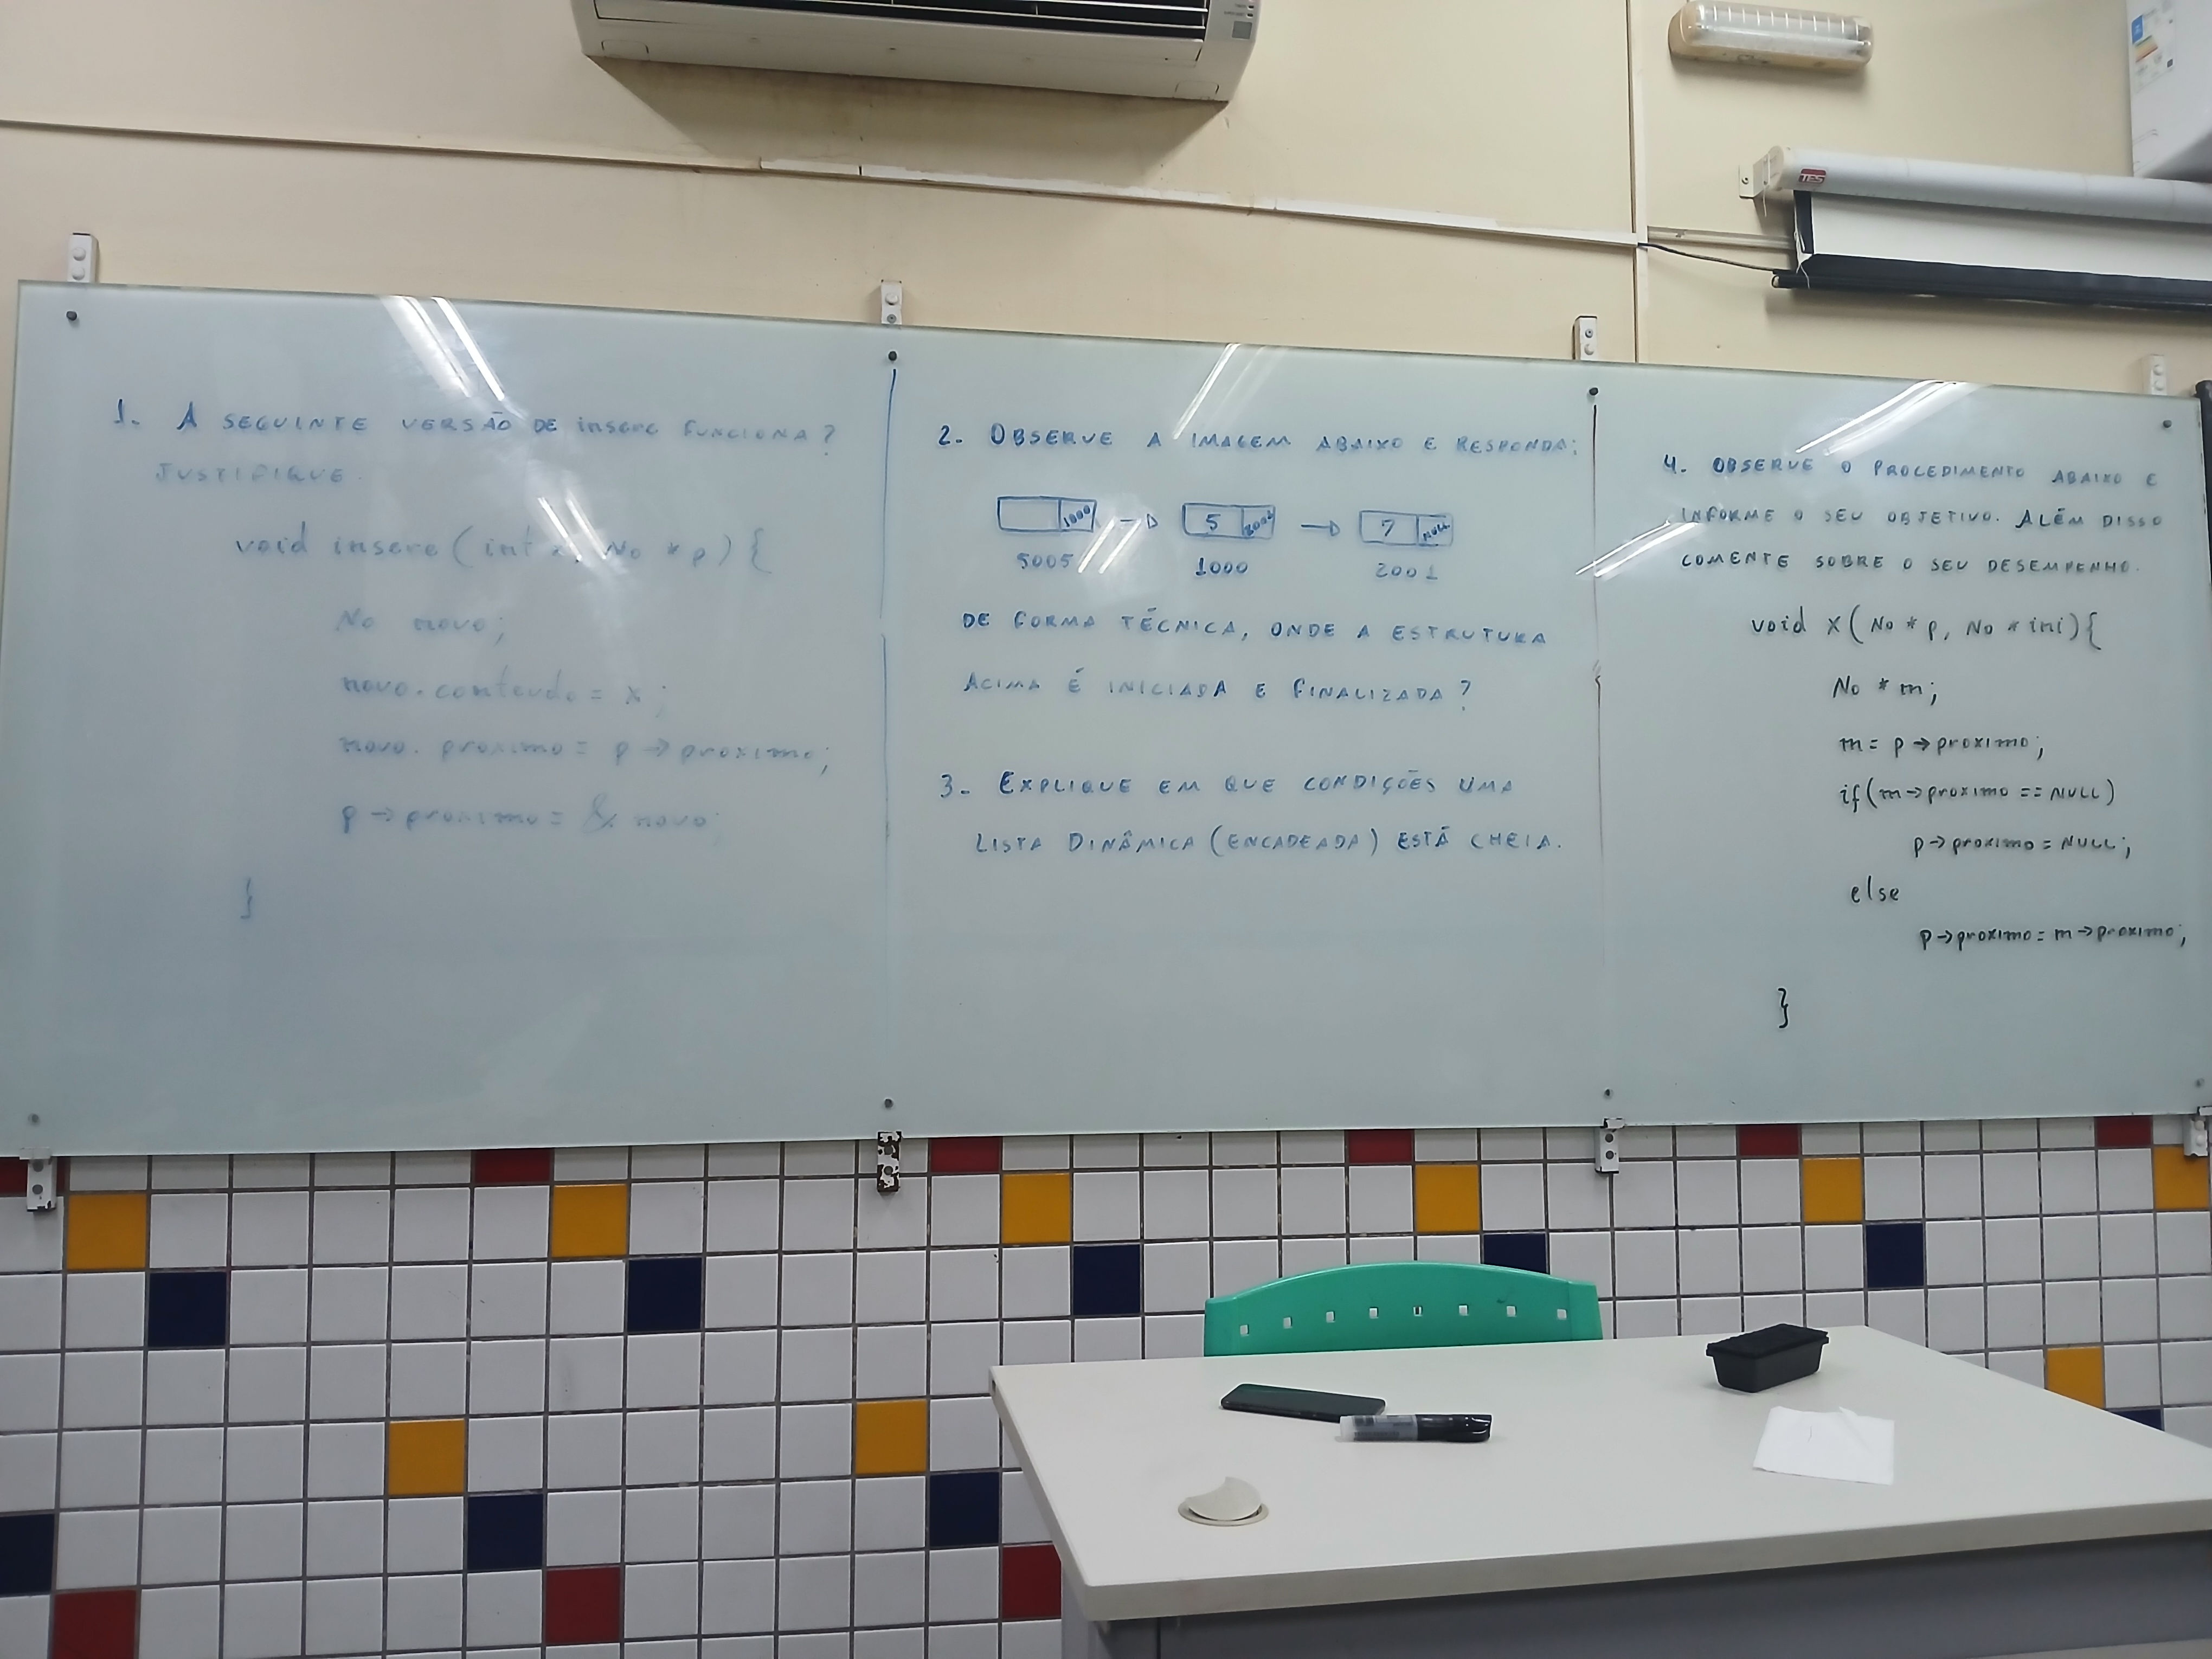 1. A SEGUINTE VERSÃO DE insere FUNCIONA?
JUSTIFIQUE.
void insere (int x, No * p) {
No novo;
novo.conteudo = x;
novo.proximo = p -> proximo;
p -> proximo = & novo;
}
2. OBSERVE A IMAGEM ABAIXO E RESPONDA:
1000 5 2001 7 NULL
5005 1000 2001
DE FORMA TÉCNICA, ONDE A ESTRUTURA
ACIMA É INICIADA E FINALIZADA?
3. EXPLIQUE EM QUE CONDIÇÕES UMA
LISTA DINÂMICA (ENCADEADA) ESTÁ CHEIA.
4. OBSERVE O PROCEDIMENTO ABAIXO E
INFORME O SEU OBJETIVO. ALÉM DISSO
COMENTE SOBRE O SEU DESEMPENHO.
void X (No * p, No * ini) {
No * m;
m = p -> proximo;
if (m -> proximo == NULL)
p -> proximo = NULL;
else
p -> proximo = m -> proximo;
}